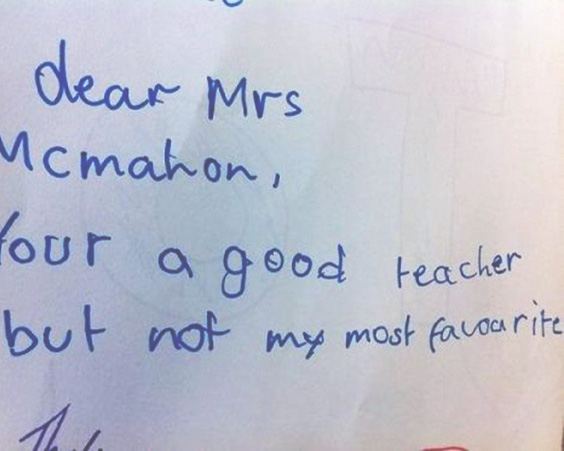 dear Mrs
Mcmahon,
Your a good teacher
but not my most favourite